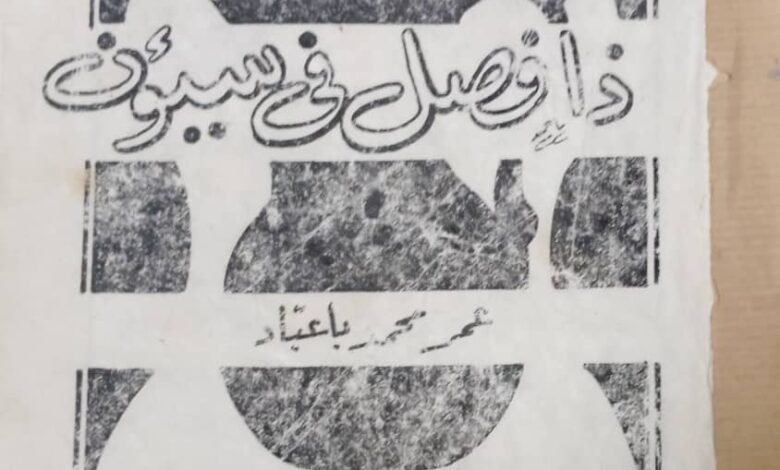 ذا فصل في سيئون
عمر محمد باعبّاد